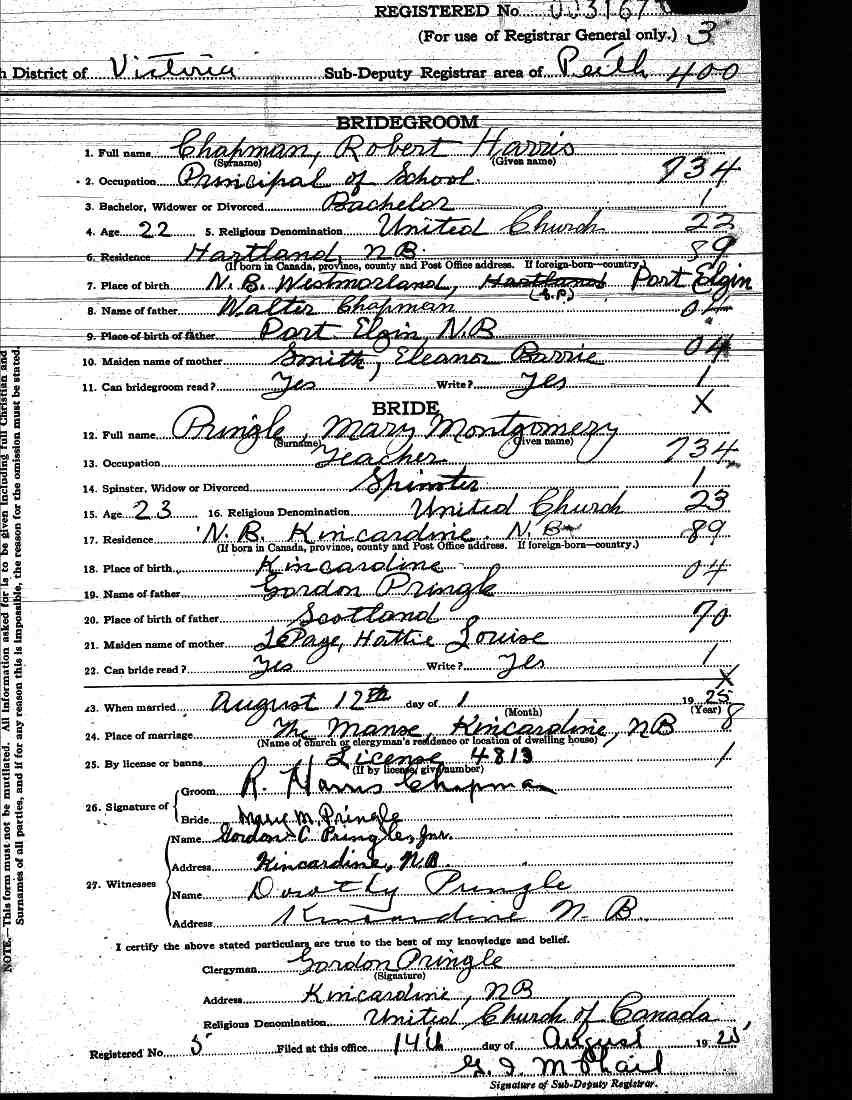 REGISTERED No. 003167
(For use of Registrar General only.) 3
District of Victoria Sub-Deputy Registrar area of Perth 400
BRIDEGROOM
1. Full name Chapman, Robert Harris
(Surname) (Given name)
2. Occupation Principal of School. 734
3. Bachelor, Widower or Divorced Bachelor 1
4. Age 22 5. Religious Denomination United Church 23
6. Residence Hartland, N.B. 89
(If born in Canada, province, county and Post Office address. If foreign-born—country.)
7. Place of birth N.B. Westmorland, Hartland Port Elgin
(S.P.)
8. Name of father Walter Chapman 04
9. Place of birth of father Port Elgin, N.B
10. Maiden name of mother Smith, Eleanor Barrie 04
11. Can bridegroom read? Yes Write? Yes 1
BRIDE X
12. Full name Pringle, Mary Montgomery
(Surname) (Given name)
13. Occupation Teacher 734
14. Spinster, Widow or Divorced Spinster 1
15. Age 23 16. Religious Denomination United Church 23
17. Residence N.B. Kincardine. N.B. 89
(If born in Canada, province, county and Post Office address. If foreign-born—country.)
18. Place of birth Kincardine 04
19. Name of father Gordon Pringle
20. Place of birth of father Scotland 70
21. Maiden name of mother LePage, Hattie Louise
22. Can bride read? Yes Write? Yes 1
X
23. When married August 12th day of 1925
(Month) (Year) 8
24. Place of marriage The Manse, Kincardine, NB
(Name of church or clergyman's residence or location of dwelling house)
25. By license or banns License 4813 1
(If by license, give number)
26. Signature of Groom R. Harris Chapman
Bride Marie M. Pringle
27. Witnesses Name Gordon C Pringle, Jnr.
Address Kincardine, N.B.
Name Dorothy Pringle
Address Kincardine N. B.
I certify the above stated particulars are true to the best of my knowledge and belief.
Clergyman Gordon Pringle
(Signature)
Address Kincardine, NB
Religious Denomination United Church of Canada
Registered No. 5 Filed at this office 14th day of August 1925
McPhail
Signature of Sub-Deputy Registrar.
NOTE.—This form must not be mutilated. All information asked for is to be given including full Christian and
Surnames of all parties, and if for any reason this is impossible, the reason for the omission must be stated.